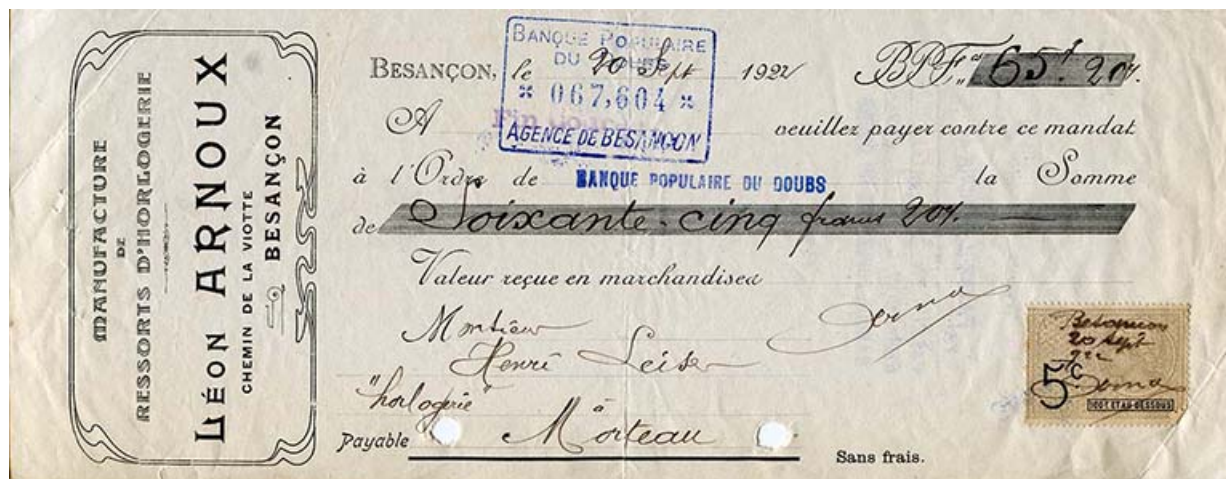 MANUFACTURE
DE
RESSORTS D'HORLOGERIE
LÉON ARNOUX
CHEMIN DE LA VIOTTE
BESANÇON
BANQUE POPULAIRE
DU DOUBS
067,604
AGENCE DE BESANÇON
BESANÇON, le 20 Sept 1922 BPF. 65f 20c.
A veuillez payer contre ce mandat
à l'Ordre de BANQUE POPULAIRE DU DOUBS la Somme
de Soixante-cinq francs 20c.
Valeur reçue en marchandises
Monsieur
Henri
horlogerie
à
Payable Morteau
Sans frais.
Besançon
20 sept
922
5c
100F ET AU-DESSOUS